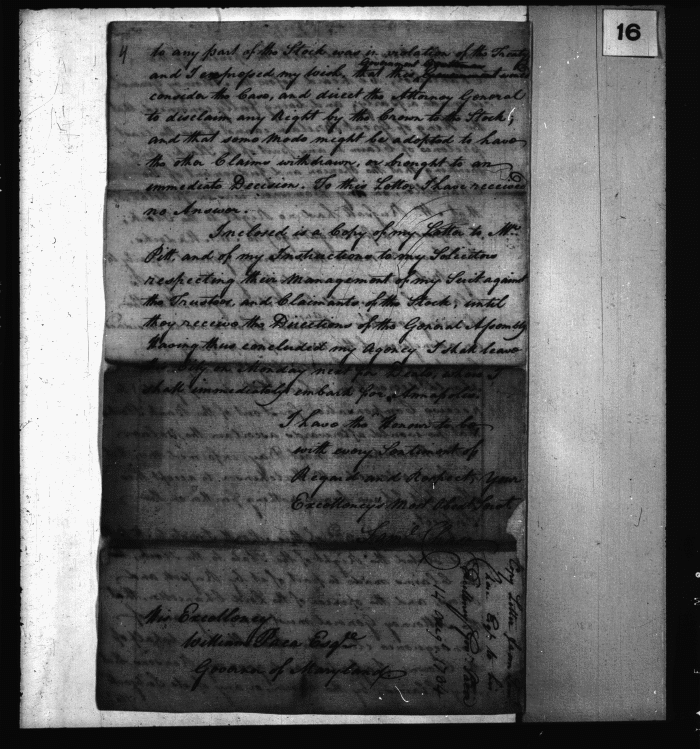 16
4
to any part of the Stock was in violation of the Treaty
and I expressed my Wish, that the Government would
consider the Case, and direct the Attorney General
to disclaim any Right by the Crown to the Stock,
and that some Mode might be adopted to have
the other Claims withdrawn, or brought to an
immediate Decision. To this Letter I have received
no Answer.
Inclosed is a Copy of my Letter to Mr.
Pitt, and of my Instructions to my Solicitors
respecting their Management of my Suit against
the Trustees and Claimants of the Stock, until
they receive the Directions of the General Assembly
Having thus concluded my Agency I shall leave
on Monday next for where I
shall immediately embark for Annapolis.
I have the Honour to be
with every Sentiment of
Regard and Respect, Your
Excellency's Most Obed. Servt
Saml.
His Excellency
William Paca Esqre
Govenr of Maryland
Copy Letter from
to his
Excellency
Augt 1784